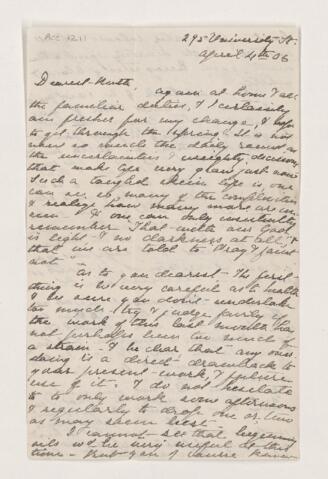 Acc 1211
295 University St.
April 4th 06
Dearest Ruth,
again at home & all
the familiar duties, & I certainly
am fresher for my change, & hope
to get through the spring. It is not
when so much the daily round as
the uncertainties & weighty decisions
that make life very
Such a tangled skein life is one
can see so many of the complications
& realize how many more are
one can only
remember That with our God
is light - & no darkness at all, &
that we are told to Pray & faint
not"
As to you dearest - The first
thing is be very careful as to health
& be sure you don't undertake
too much - try & judge fairly if
the work of this last month has
not perhaps been too much of
a strain - & be clear that any over
doing is a direct drawback to
your present work, & future
use of it. I do not hesitate
to only work some afternoons
& regularly to drop one or two
as may seem best.
I cannot see that beginning
wd be very useful at this
time - but you of course know